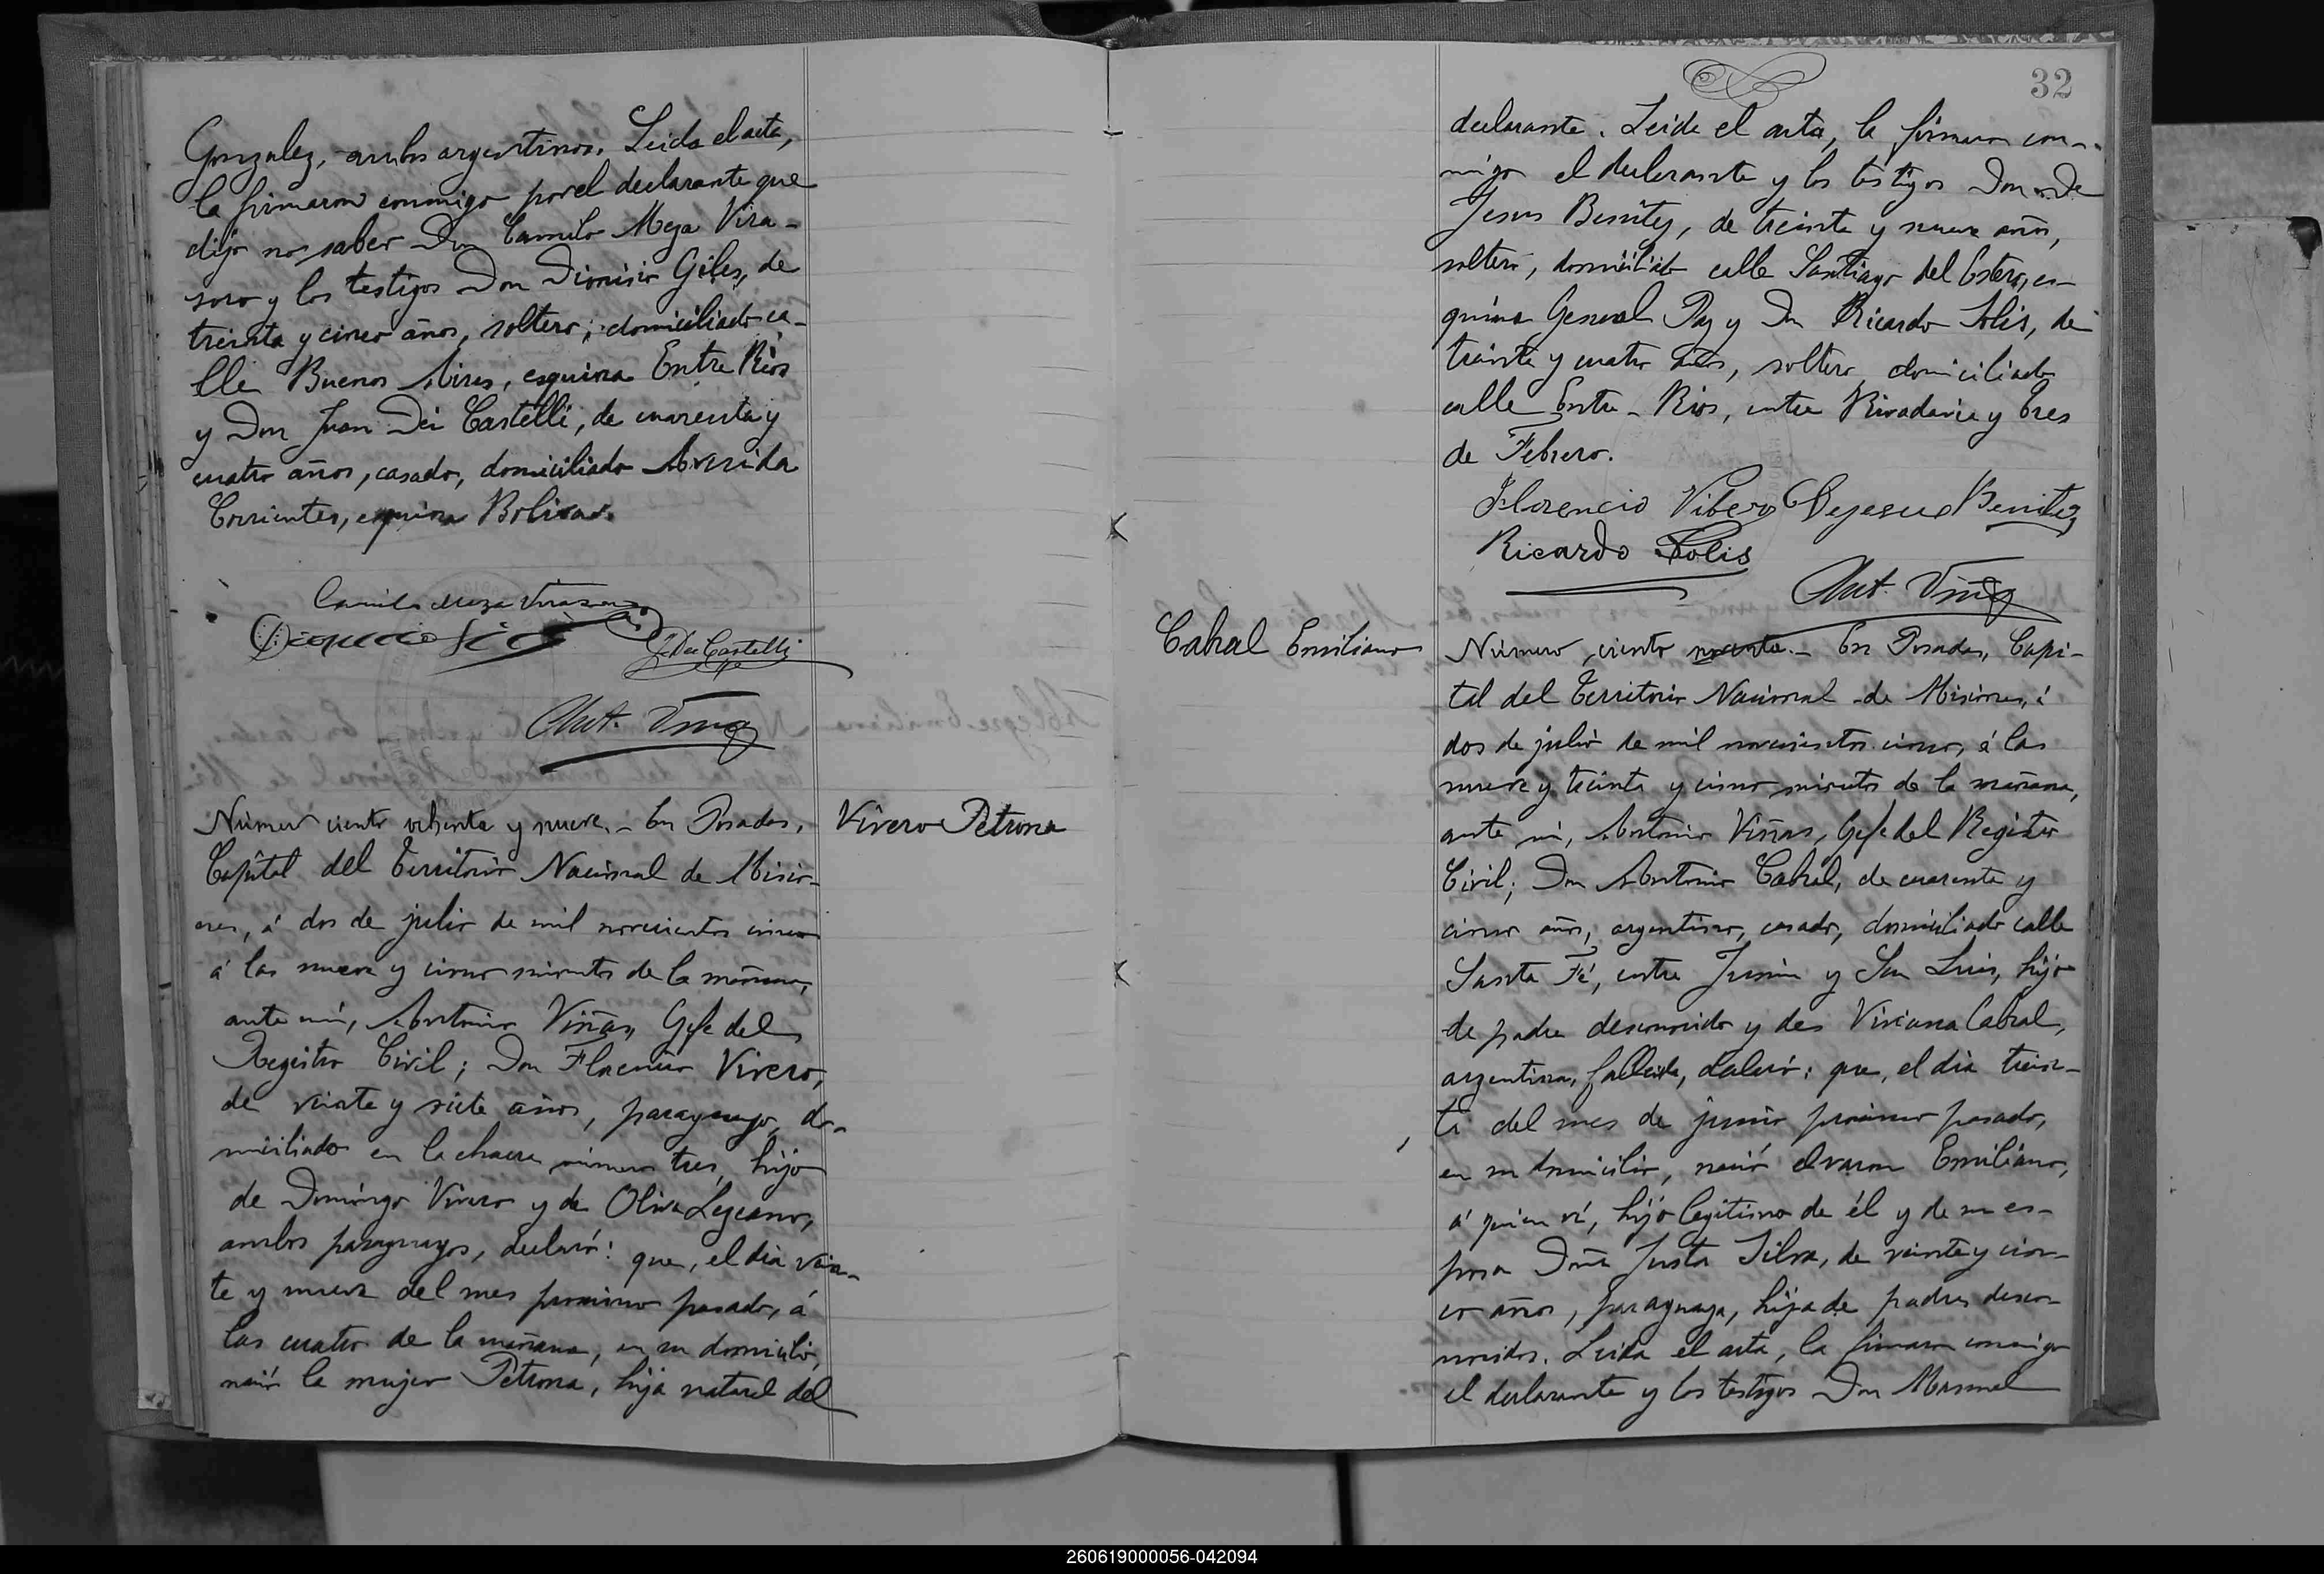 Gonzalez, ambos argentinos. Leida el acta,
la firmaron conmigo por el declarante que
dijo no saber Don Camilo Meza Vira-
soro y los testigos Don Dionisio Giles, de
treinta y cinco años, soltero, domiciliado ca-
lle Buenos Aires, esquina Entre Rios
y Don Juan Dei Castelli, de cuarenta y
cuatro años, casado, domiciliado Avenida
Corrientes, esquina Bolivar.
Camilo Meza Virasoro
J. Dei Castelli
Ant. Viñas
Número ciento ochenta y nueve.- En Posadas,
Vivero Petrona
Capital del Territorio Nacional de Misio-
nes, á dos de julio de mil novecientos cinco
á las nueve y cinco minutos de la mañana,
ante mi, Antonio Viñas, Gefe del
Registro Civil; Don Florencio Vivero,
de veinte y siete años, paraguayo, do-
miciliado en la chacra número tres, hijo
de Domingo Vivero y de Oliva Lezcano,
ambos paraguayos, declaró: que, el dia vein-
te y nueve del mes proximo pasado, á
las cuatro de la mañana, en su domicilio,
nació la mujer Petrona, hija natural del
32
declarante. Leida el acta, la firmaron con-
migo el declarante y los testigos Don De
Jesus Benitez, de treinta y nueve años,
soltero, domiciliado calle Santiago del Estero, es-
quina General Paz y Don Ricardo Solis, de
treinta y cuatro años, soltero, domiciliado
calle Entre-Rios, entre Rivadavia y Tres
de Febrero.
Florencio Vibero Dejesus Benitez
Ricardo Solis
Ant. Viñas
Cabral Emiliano
Número ciento noventa.- En Posadas, Capi-
tal del Territorio Nacional de Misiones, á
dos de julio de mil novecientos cinco, á las
nueve y treinta y cinco minutos de la mañana,
ante mi, Antonio Viñas, Gefe del Registro
Civil; Don Antonio Cabral, de cuarenta y
cinco años, argentino, casado, domiciliado calle
Santa Fé, entre Junin y San Luis, hijo
de padre desconocido y de Viviana Cabral,
argentina, fallecida, declaró: que, el dia trein-
ta del mes de junio próximo pasado,
en su domicilio, nació el varon Emiliano,
á quien ví, hijo legitimo de él y de su es-
posa Doña Justa Silva, de veinte y cin-
co años, paraguaya, hija de padres desco-
nocidos. Leida el acta, la firmaron conmigo
el declarante y los testigos Don Manuel
260619000056-042094